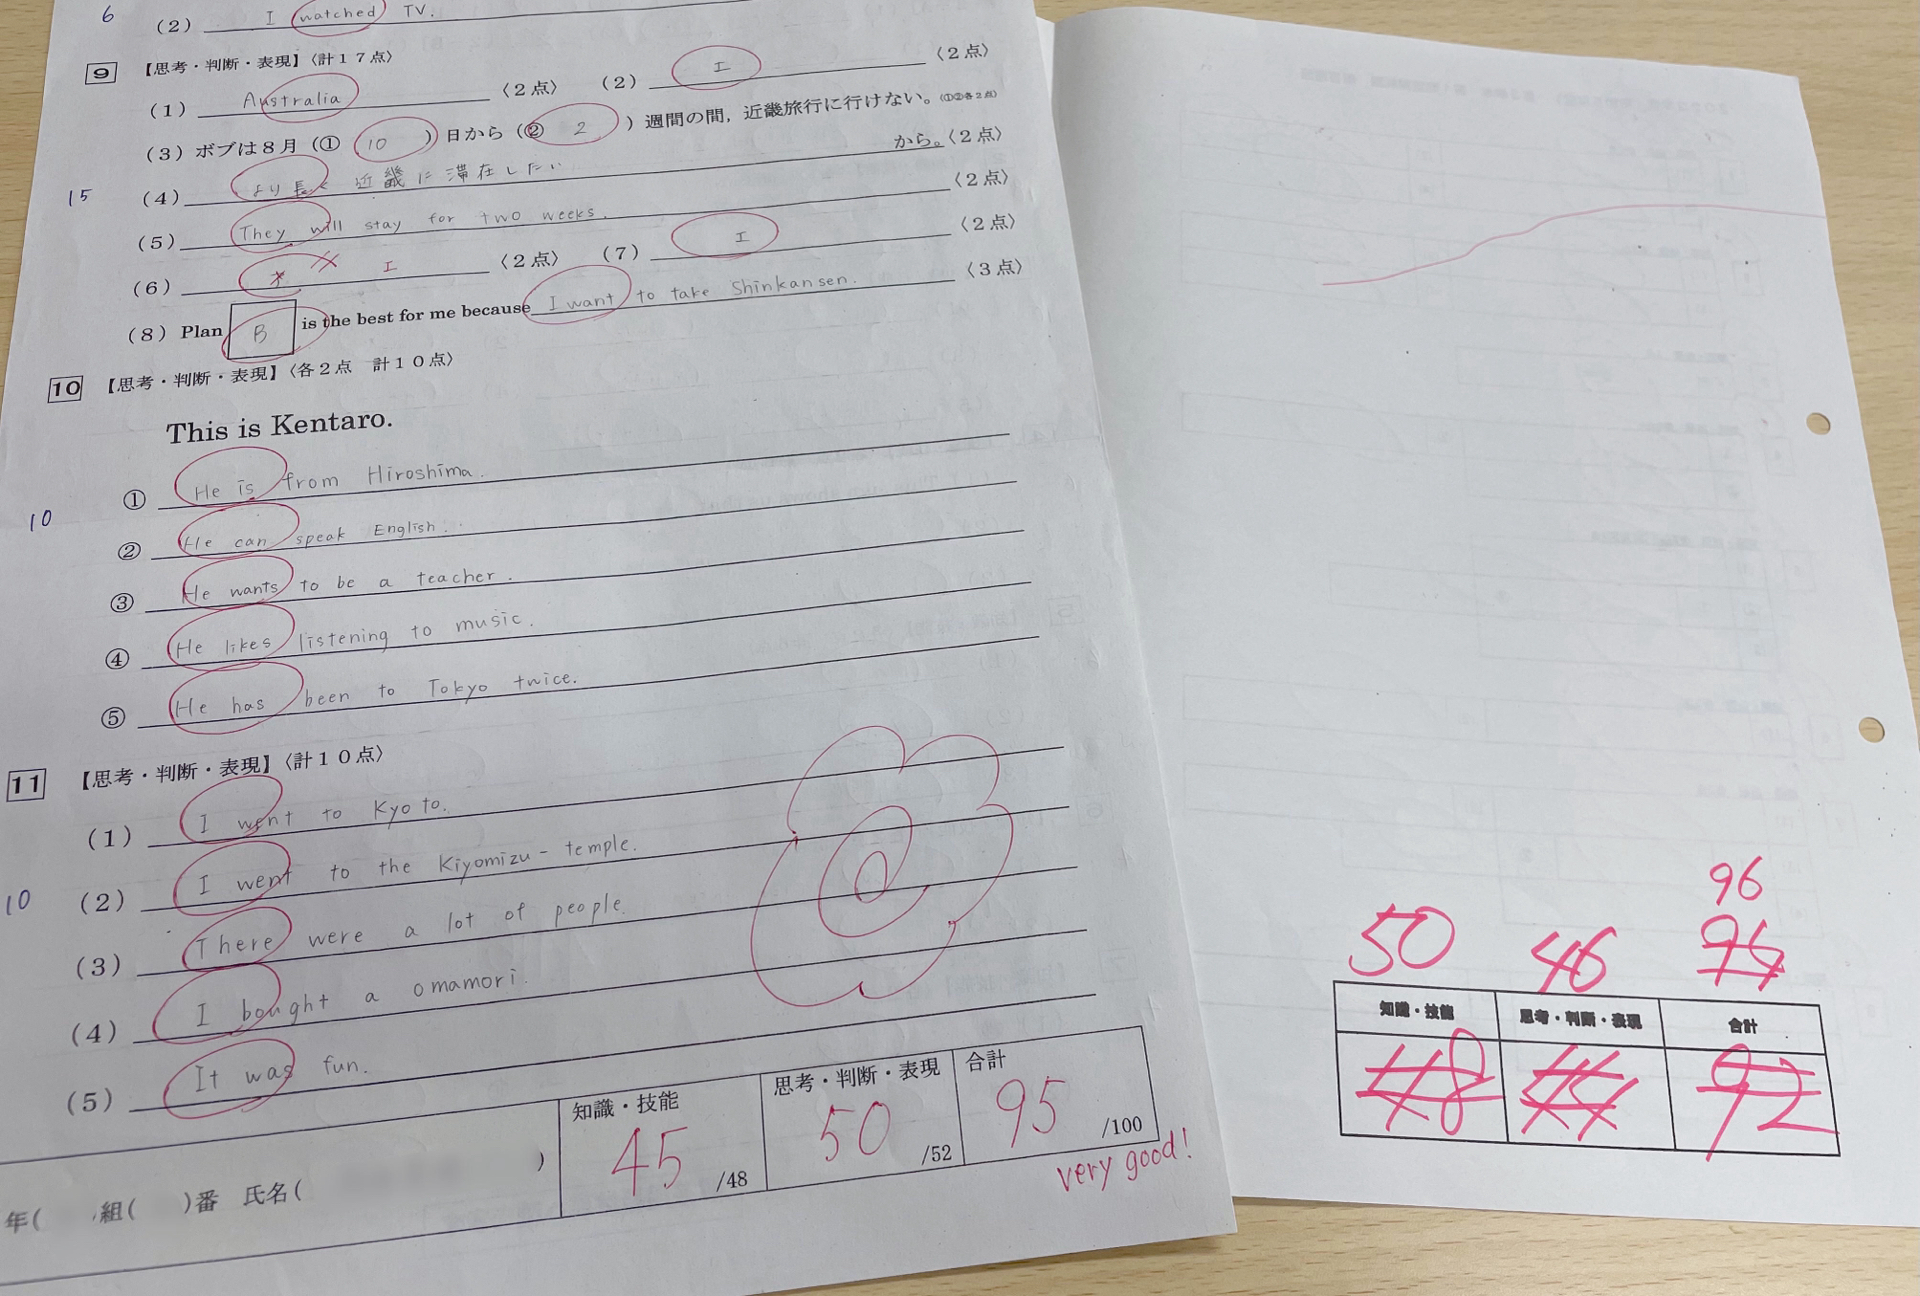 6
(2) I watched TV.
9 【思考・判断・表現】〈計17点〉
(1) Australia 〈2点〉 (2) エ 〈2点〉
(3) ボブは8月 (① 10 ) 日から (② 2 ) 週間の間，近畿旅行に行けない。〈①②各2点〉
15
(4) より長く近畿に滞在したい から。〈2点〉
(5) They will stay for two weeks. 〈2点〉
(6) エ 〈2点〉 (7) エ 〈2点〉
(8) Plan B is the best for me because I want to take Shinkansen. 〈3点〉
10 【思考・判断・表現】〈各2点 計10点〉
This is Kentaro.
① He is from Hiroshima.
10
② He can speak English.
③ He wants to be a teacher.
④ He likes listening to music.
⑤ He has been to Tokyo twice.
11 【思考・判断・表現】〈計10点〉
(1) I went to Kyoto.
10
(2) I went to the Kiyomizu-temple.
(3) There were a lot of people.
(4) I bought a omamori.
(5) It was fun.
知識・技能 思考・判断・表現 合計
45 /48 50 /52 95 /100
very good!
年( 組( )番 氏名( )
96
50 46 94
知識・技能 思考・判断・表現 合計
48 44 92